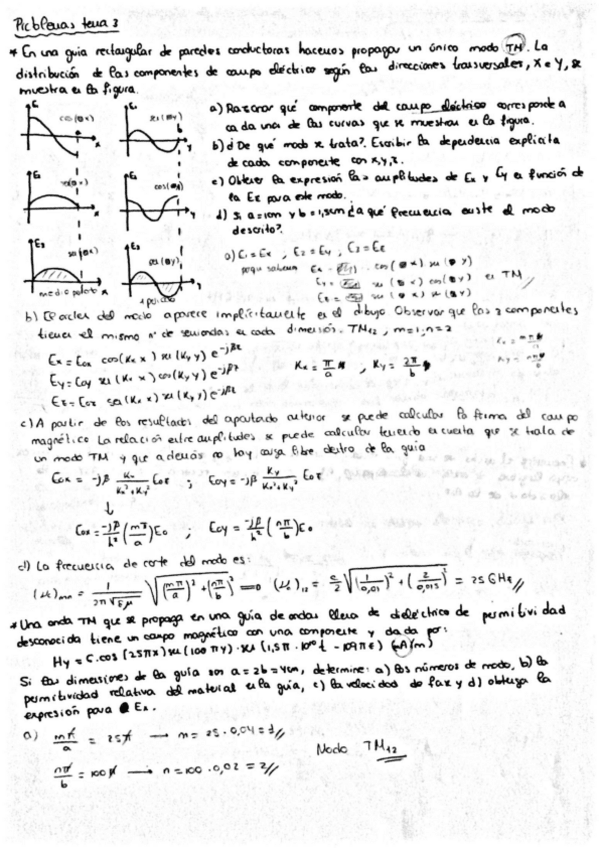 Problemas tema 3
* En una guia rectangular de paredes conductoras hacemos propagar un único modo TM. La
distribución de las componentes de campo eléctrico según las direcciones transversales, x e y, se
muestra en la figura.
a) Razonar qué componente del campo eléctrico corresponde a
cada una de las curvas que se muestran en la figura.
b) ¿De qué modo se trata? Escribir la dependencia explicita
de cada componente con x,y,z.
c) Obtener la expresión las amplitudes de Ex y Ey en función de
la Ez para este modo.
d) Si a=1cm y b=1,5cm ¿a qué frecuencia existe el modo
descrito?
E1 cos( x) x
E1 b y
E2 x
E2 cos( x) y
E3 x
medio
E3 y
a) E1 = Ex, E2 = Ey, E3 = Ez
Ex = cos( x) sen( y)
Ey = sen( x) cos( y) en TM
Ez = sen( x) sen( y)
b) El orden del modo aparece implícitamente en el dibujo. Observar que las 3 componentes
tienen el mismo nº de semiondas en cada dimensión. TM12, m=1, n=2
Ex = Eox cos(Kx x) sen(Ky y) e^-jβz
Ey = Eoy sen(Kx x) cos(Ky y) e^-jβz
Ez = Eoz sen(Kx x) sen(Ky y) e^-jβz
Kx = π/a , Ky = 2π/b
c) A partir de los resultados del apartado anterior se puede calcular la forma del campo
magnético. La relación entre amplitudes se puede calcular teniendo en cuenta que se trata de
un modo TM y que además no hay carga libre dentro de la guia
Eox = -jβ Kx/(Kx²+Ky²) Eoz ; Eoy = -jβ Ky/(Kx²+Ky²) Eoz
↓
Eox = -jβ/h² (mπ/a) Eo ; Eoy = -jβ/h² (nπ/b) Eo
d) La frecuencia de corte del modo es:
= 1/(2π√εμ) √((mπ/a)² + (nπ/b)²) = c/2 √((1/0,01)² + (2/0,015)²) = 25 GHz
* Una onda TM que se propaga en una guía de ondas llena de dieléctrico de permitividad
desconocida tiene un campo magnético con una componente y dada por:
Hy = C·cos(25πx) sen(100πy)·sen(1,5π·10¹⁰t - 109πz) (mA/m)
Si las dimensiones de la guía son a=2b=4cm, determine: a) los números de modo, b) la
permitividad relativa del material en la guía, c) la velocidad de fase y d) obtenga la
expresión para Ex.
a) mπ/a = 25π → m = 25·0,04 = 1//
nπ/b = 100π → n = 100·0,02 = 2//
Modo TM12